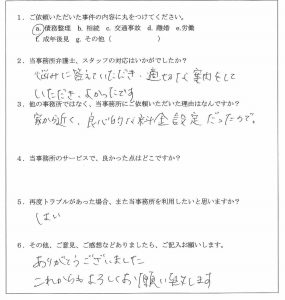 1. ご依頼いただいた事件の内容に丸をつけてください。
a.債務整理 b. 相続 c. 交通事故 d. 離婚 e.労働
f. 成年後見 g. その他( )
2. 当事務所弁護士、スタッフの対応はいかがでしたか?
悩みに答えていただき、適切な案内をして
いただき、よかったです
3. 他の事務所ではなく、当事務所にご依頼いただいた理由はなんですか?
家から近く、良心的な料金設定だったので。
4. 当事務所のサービスで、良かった点はどこですか?
5. 再度トラブルがあった場合、また当事務所を利用したいと思いますか?
はい
6. その他、ご意見、ご感想などありましたら、ご記入お願いします。
ありがとうございました
これからもよろしくお願い致します